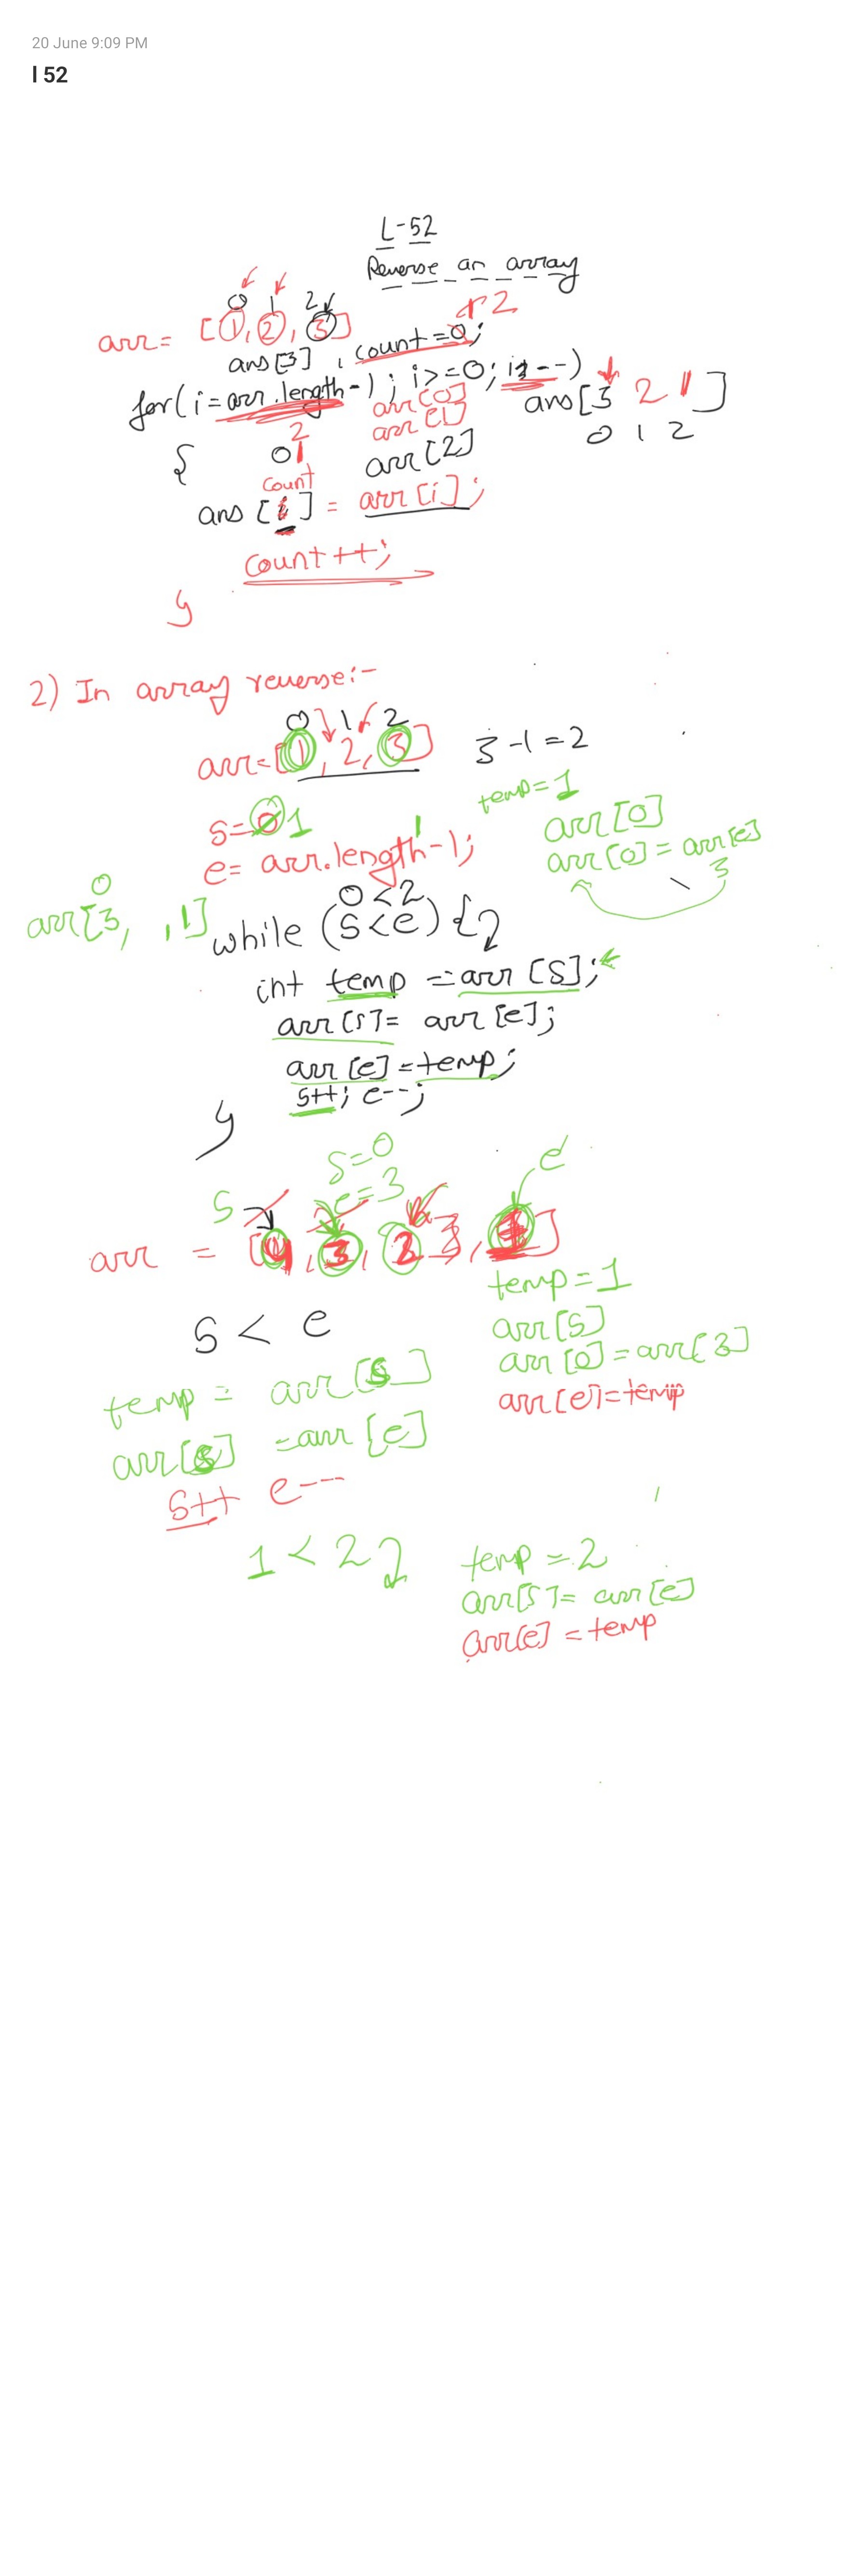 20 June 9:09 PM
l 52
L-52
Reverse an array
0 1 2
2
arr= [1, 2, 3]
ans[3] , count =0;
for(i=arr.length-1; i>=0; i--)
ans[3 2 1]
0 1 2
arr[0]
arr[1]
arr[2]
{
2
0 1
count
ans [i] = arr[i];
count++;
}
2) In array reverse:-
0 1 2
arr=[1, 2, 3]
3-1=2
temp=1
s=0 1
arr[0]
arr[0] = arr[e]
3
1
e= arr.length-1;
0
arr[3, ,1]
0<2
while (s<e) {
int temp = arr [s];
arr[s]= arr[e];
arr[e]=temp;
s++; e--;
}
s=0
e=3
s
e
arr = [4, 3, 2 3, 1]
temp=1
s < e
arr[s]
arr[0]=arr[3]
temp = arr[s]
arr[e]=temp
arr[s] =arr[e]
s++ e--
1<2
temp=2
arr[s]= arr[e]
arr[e] =temp